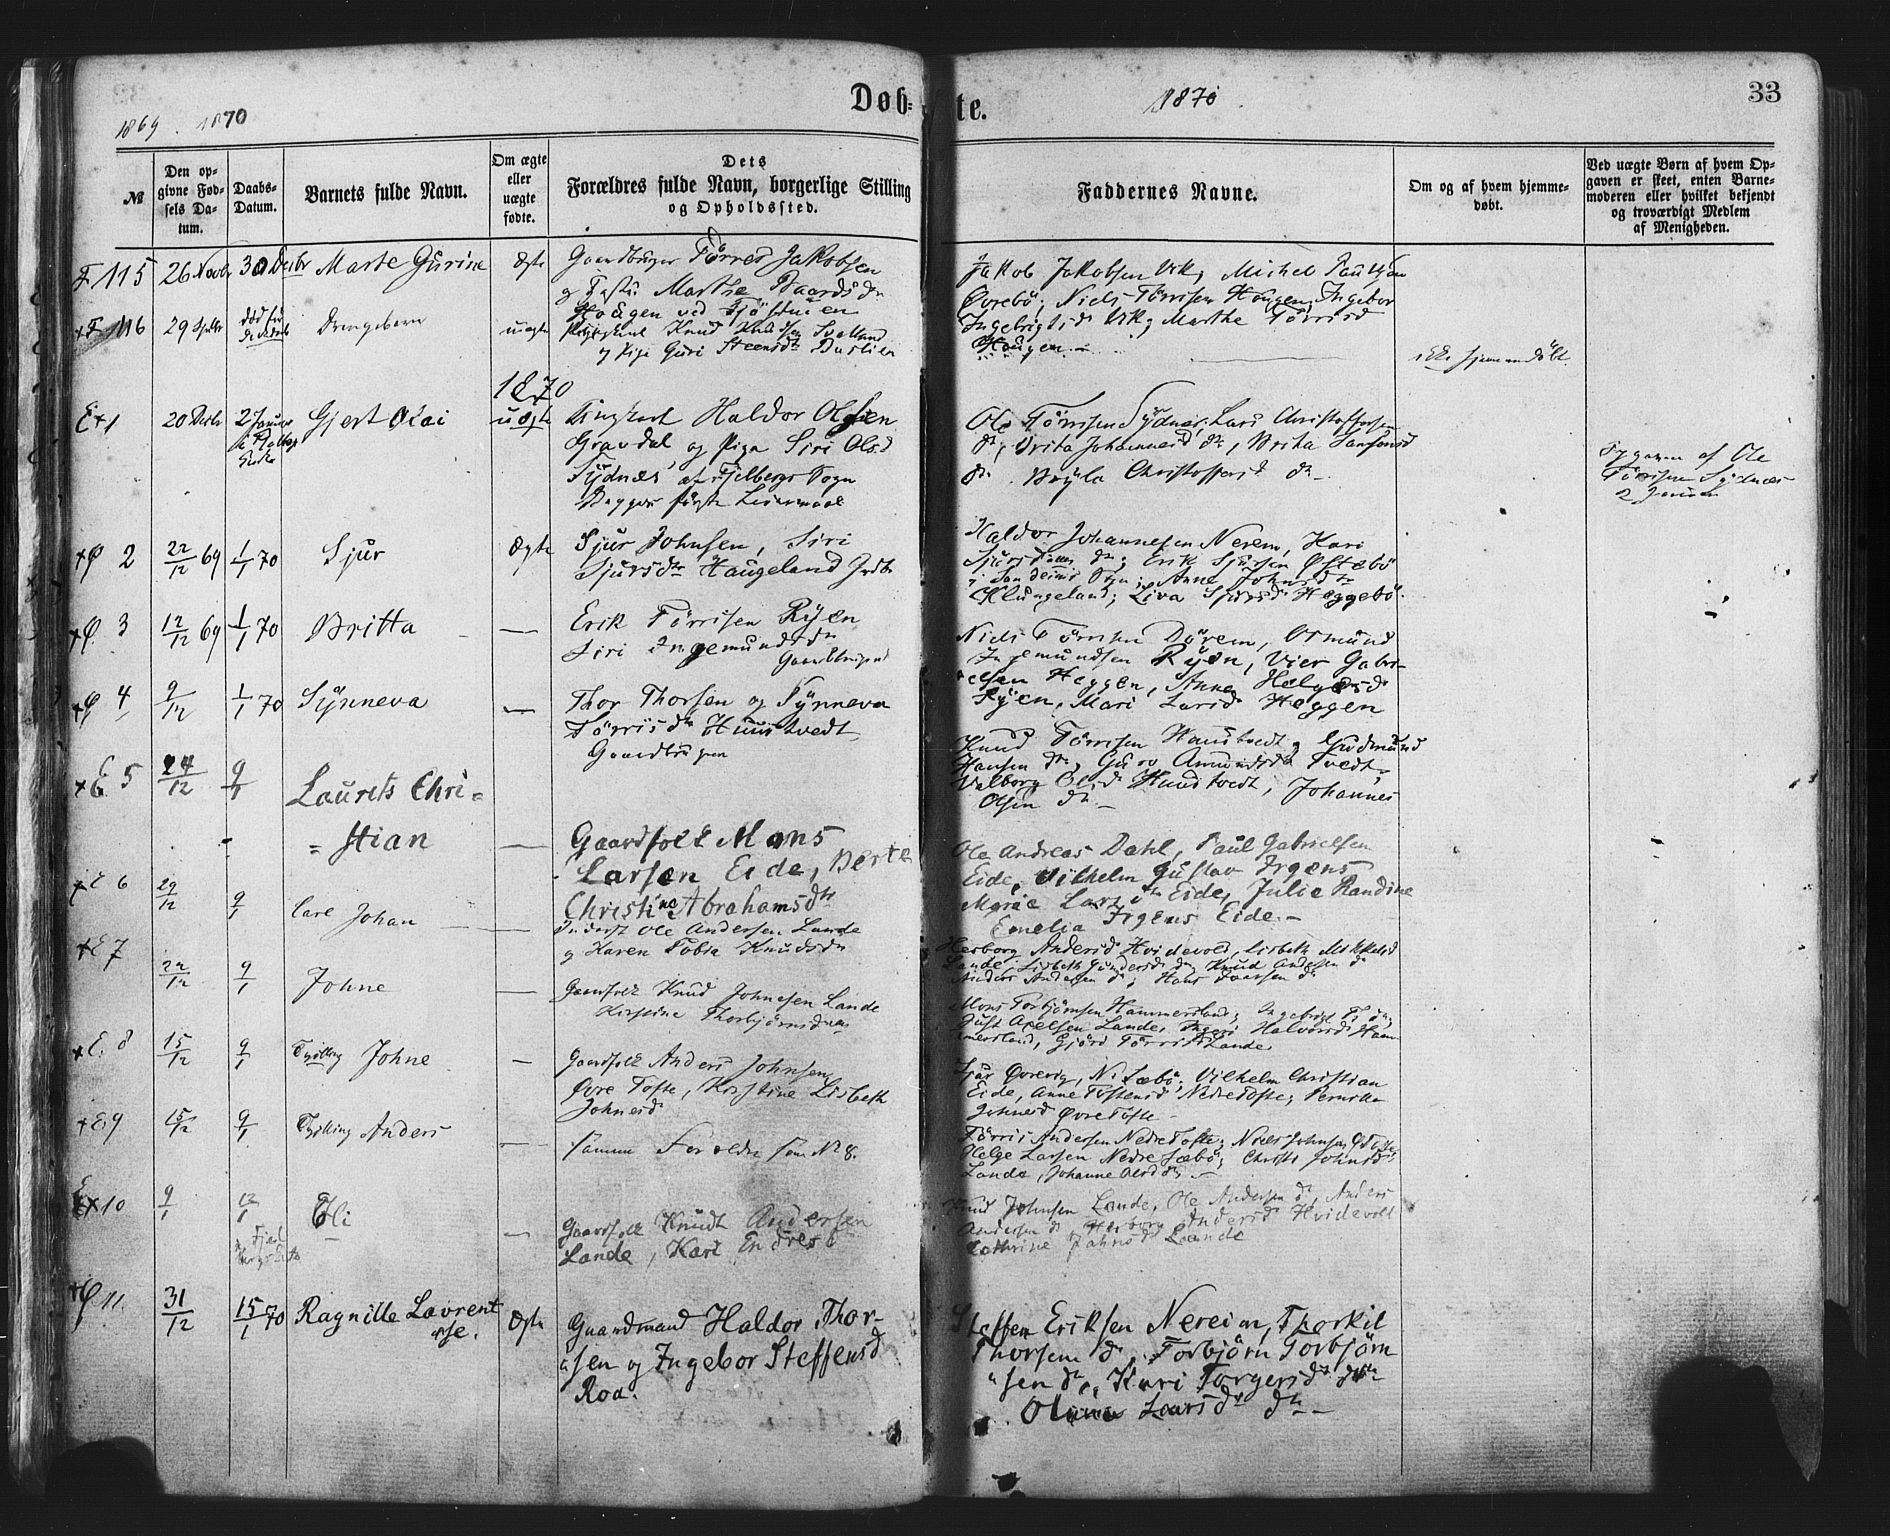 Døb=
te.
1869. 1870
1870
33
№
Den op-
givne Fød-
sels Da-
tum.
Daabs-
Datum.
Barnets fulde Navn.
Om ægte
eller
uægte
fødte.
Dets
Forældres fulde Navn, borgerlige Stilling
og Opholdssted.
Faddernes Navne.
Om og af hvem hjemme-
døbt.
Ved uægte Børn af hvem Op-
gaven er skeet, enten Barne-
moderen eller hvilket bekjendt
og troværdigt Medlem
af Menigheden.
F 115 26 Novbr 30 Decbr Marte Gurine Ægte
Gaardbruger Tørres Jakobsen
og Marthe Baardsdr
Hougen ved
Jakob Jakobsen Vik,
Øvrebø; Niels Tørrisen Hougen, Ingebor
Ingebrigtsdr Vik, Marthe Tørrisd
Hougen.—
116 29 Drengebarn uægte
Knud Knudsen
og Pige Guri Steensdr
ikke hjemmedøbt
1870
E 1 20 Decbr 2 Januar Gjert Olai uægte
Ungkarl Haldor Olsen
Gravdal, og Pige Siri Olsd
Sydnes af Fjelbergs Sogn
Begges første Leiermaal
Ole Tørrisen Sydnes, Lars Christoffersen
do, Brita Johannesd do, Brita
do Christoffersd do
Opgaven af Ole
Tørrisen Sydnes
2 Januar
2 22/12 69 1/1 70 Sjur Ægte
Sjur Johnsen, Siri
Sjursdtr Haugeland Indb.
Haldor Johannesen Nerem, Kari
do, Erik Sjursen Østebø
i Sandeids Sogn, Anne Johnsdtr
Klungeland; Siva Sjursdr Heggebø.
3 12/12 69 1/1 70 Britta —
Erik Tørrisen Ryen
Siri Ingemundsdr
Niels Tørrisen Dørem, Osmund
Ingemundsen Ryen, Vier Gabri-
elsen Heggen, Anne Helgesd
Ryen, Mari Larsd Heggen
4 9/12 1/1 70 Synneva —
Thor Thorsen og Synneva
Tørrisdr Hunstvedt
Gaardbrugen
Knud Tørrisen Haustvedt, Gudmund
Hansen do, Guro Amundsdr Tvedt,
Valborg Olsdr Hundtvedt, Johannes
Olsen do —
E 5 24/12 9/1 Laurits Chri=
=stian —
Gaardfolk Mons
Larsen Eide, Berte
Christine Abrahamsdtr
Ole Andreas Dahl, Paul Gabrielsen
Eide, Vilhelm Gustav Irgens
Marie Larsdtr Eide, Julie Randine
Emelia Irgens Eide.—
E 6 29/12 9/1 Carl Johan —
Inderst Ole Andersen Lande
og Karen Tobia Knudsdr
Herborg Andersd Hvidevold, Lisbeth Mikkelsd
Lande, Lisbeth Gundersd do, Knud Andersen do
Anders Andersen do, Hans do
E 7 22/12 9/1 Johne —
Gaardfolk Knud Johnesen Lande
Kirstine Thorbjørnsdr
Mons Torbjørnsen Hammersland,
Axelsen Lande, Halvorsd Ham-
mersland, Gjøri Tørrisd Lande.
E. 8 15/12 9/1 Tvilling Johne —
Gaardfolk Anders Johnsen
Øvre Tofte, Kirstine Lisbeth
Johnesd
Sjur Øvrevig, N. Sæbø, Vilhelm Christian
Eide, Anne Tostensd Nedre Tofte, Pernille
Johnesd Øvre Tofte —
E 9 15/12 9/1 Tvilling Anders —
samme Forældre som № 8.
Tørris Andersen Nedre Tofte, Niels Johnsen
Helge Larsen Nedre Sæbø, Christi Johnsd
Lande, Johanne Olsd do —
E 10 9/1 12/1 Oli —
Gaardfolk Knudt Andersen
Lande, Kari Endresd
Knud Johnsen Lande, Ole Andersen do, Anders
Andersen do, Herborg Andersd Hvidevold
Cathrine Johnsd Lande
11. 31/12 15/1 70 Ragnille Lavrent
se. Ægte
Gaardmand Haldor Thor-
sen og Ingebor Steffensd
Roa.
Steffen Eriksen Nereim, Thorkil
Thorsen do, Torbjørn Torbjørn
sen do, Kari Torgersdr do
Olina Larsdr do —